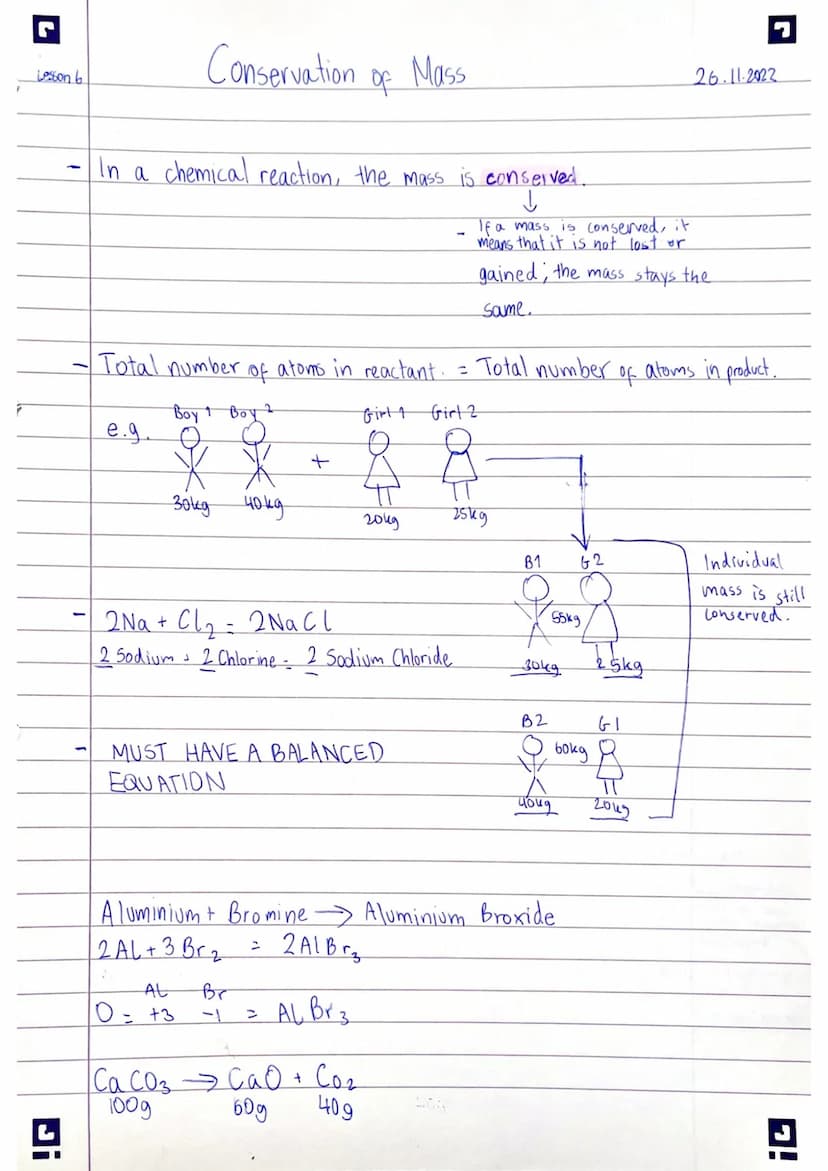 Lesson 6
Conservation of Mass
26.11.2022
- In a chemical reaction, the mass is conserved.
- If a mass is conserved, it
means that it is not lost or
gained; the mass stays the
same.
- Total number of atoms in reactant. = Total number of atoms in product.
e.g. Boy 1 Boy 2 + Girl 1 Girl 2
30kg 40kg 20kg 25kg
B1 G2
55kg
30kg 25kg
Individual
mass is still
conserved.
- 2Na + Cl₂ = 2NaCl
2 Sodium + 2 Chlorine = 2 Sodium Chloride
B2 G1
60kg
40kg 20kg
- MUST HAVE A BALANCED
EQUATION
Aluminium + Bromine → Aluminium Broxide
2AL + 3Br₂ = 2AlBr₃
AL Br
O = +3 -1 = ALBr₃
CaCO₃ → CaO + Co₂
100g 60g 40g